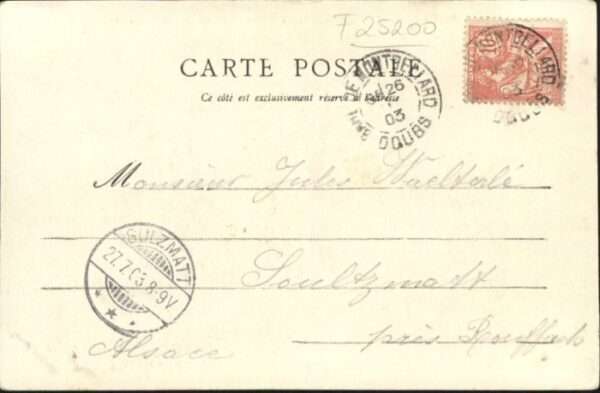 F 25200
CARTE POSTALE
Ce côté est exclusivement réservé à l'adresse
GARE DE MONTBELIARD
26
03
DOUBS
10
MONTBELIARD
03
DOUBS
Monsieur Jules
Soultzmatt
près Rouffach
Alsace
SULZMATT
27.7.03.8-9V